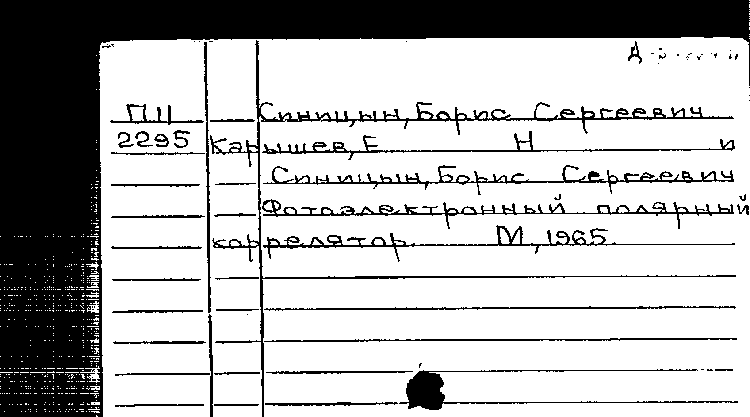 П11 Синицын, Борис Сергеевич
2295 Карышев, Е Н и
Синицын, Борис Сергеевич
Фотоэлектронный полярный
коррелятор. М., 1965.